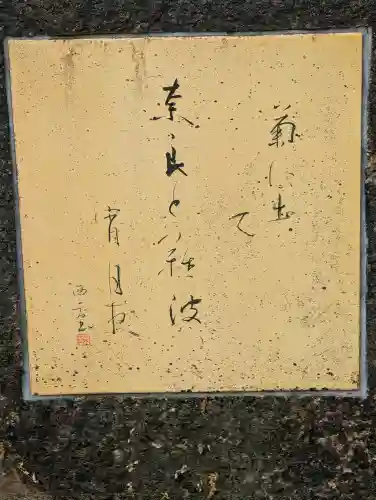 菊に出
て
奈良と難波
宵月夜